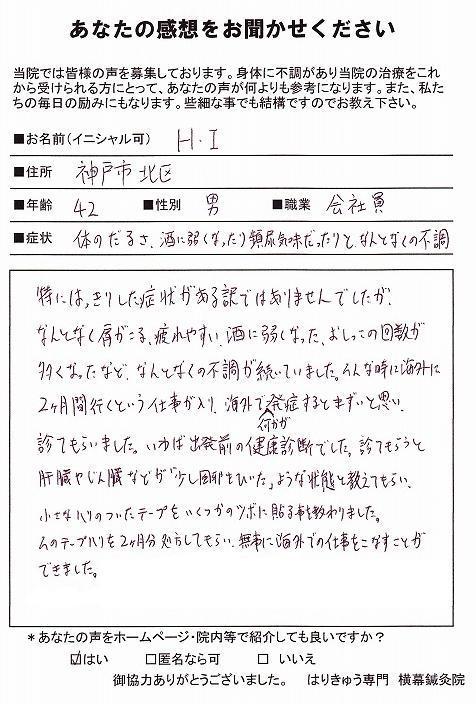 あなたの感想をお聞かせください
当院では皆様の声を募集しております。身体に不調があり当院の治療をこれ
から受けられる方にとって、あなたの声が何よりも参考になります。また、私た
ちの毎日の励みにもなります。些細な事でも結構ですのでお教え下さい。
■お名前(イニシャル可) H・I
■住所 神戸市北区
■年齢 42 ■性別 男 ■職業 会社員
■症状 体のだるさ、酒に弱くなったり頻尿気味だったりと、なんとなくの不調
特にはっきりした症状がある訳ではありませんでしたが、
なんとなく肩がこる、疲れやすい、酒に弱くなった、おしっこの回数が
多くなったなど、なんとなくの不調が続いていました。そんな時に海外に
2ヶ月間行くという仕事が入り、海外で何かが発症するとまずいと思い、
診てもらいました。いわば出発前の健康診断でした。診てもらうと
肝臓やじん臓などが"少し困却ぎみだ"ような状態と教えてもらい、
小さなハリのついたテープをいくつかのツボに貼る事を教わりました。
そのテープハリを2ヶ月分処方してもらい、無事に海外での仕事をこなすことが
できました。
*あなたの声をホームページ・院内等で紹介しても良いですか?
☑はい □匿名なら可 □ いいえ
御協力ありがとうございました。 はりきゅう専門 横幕鍼灸院